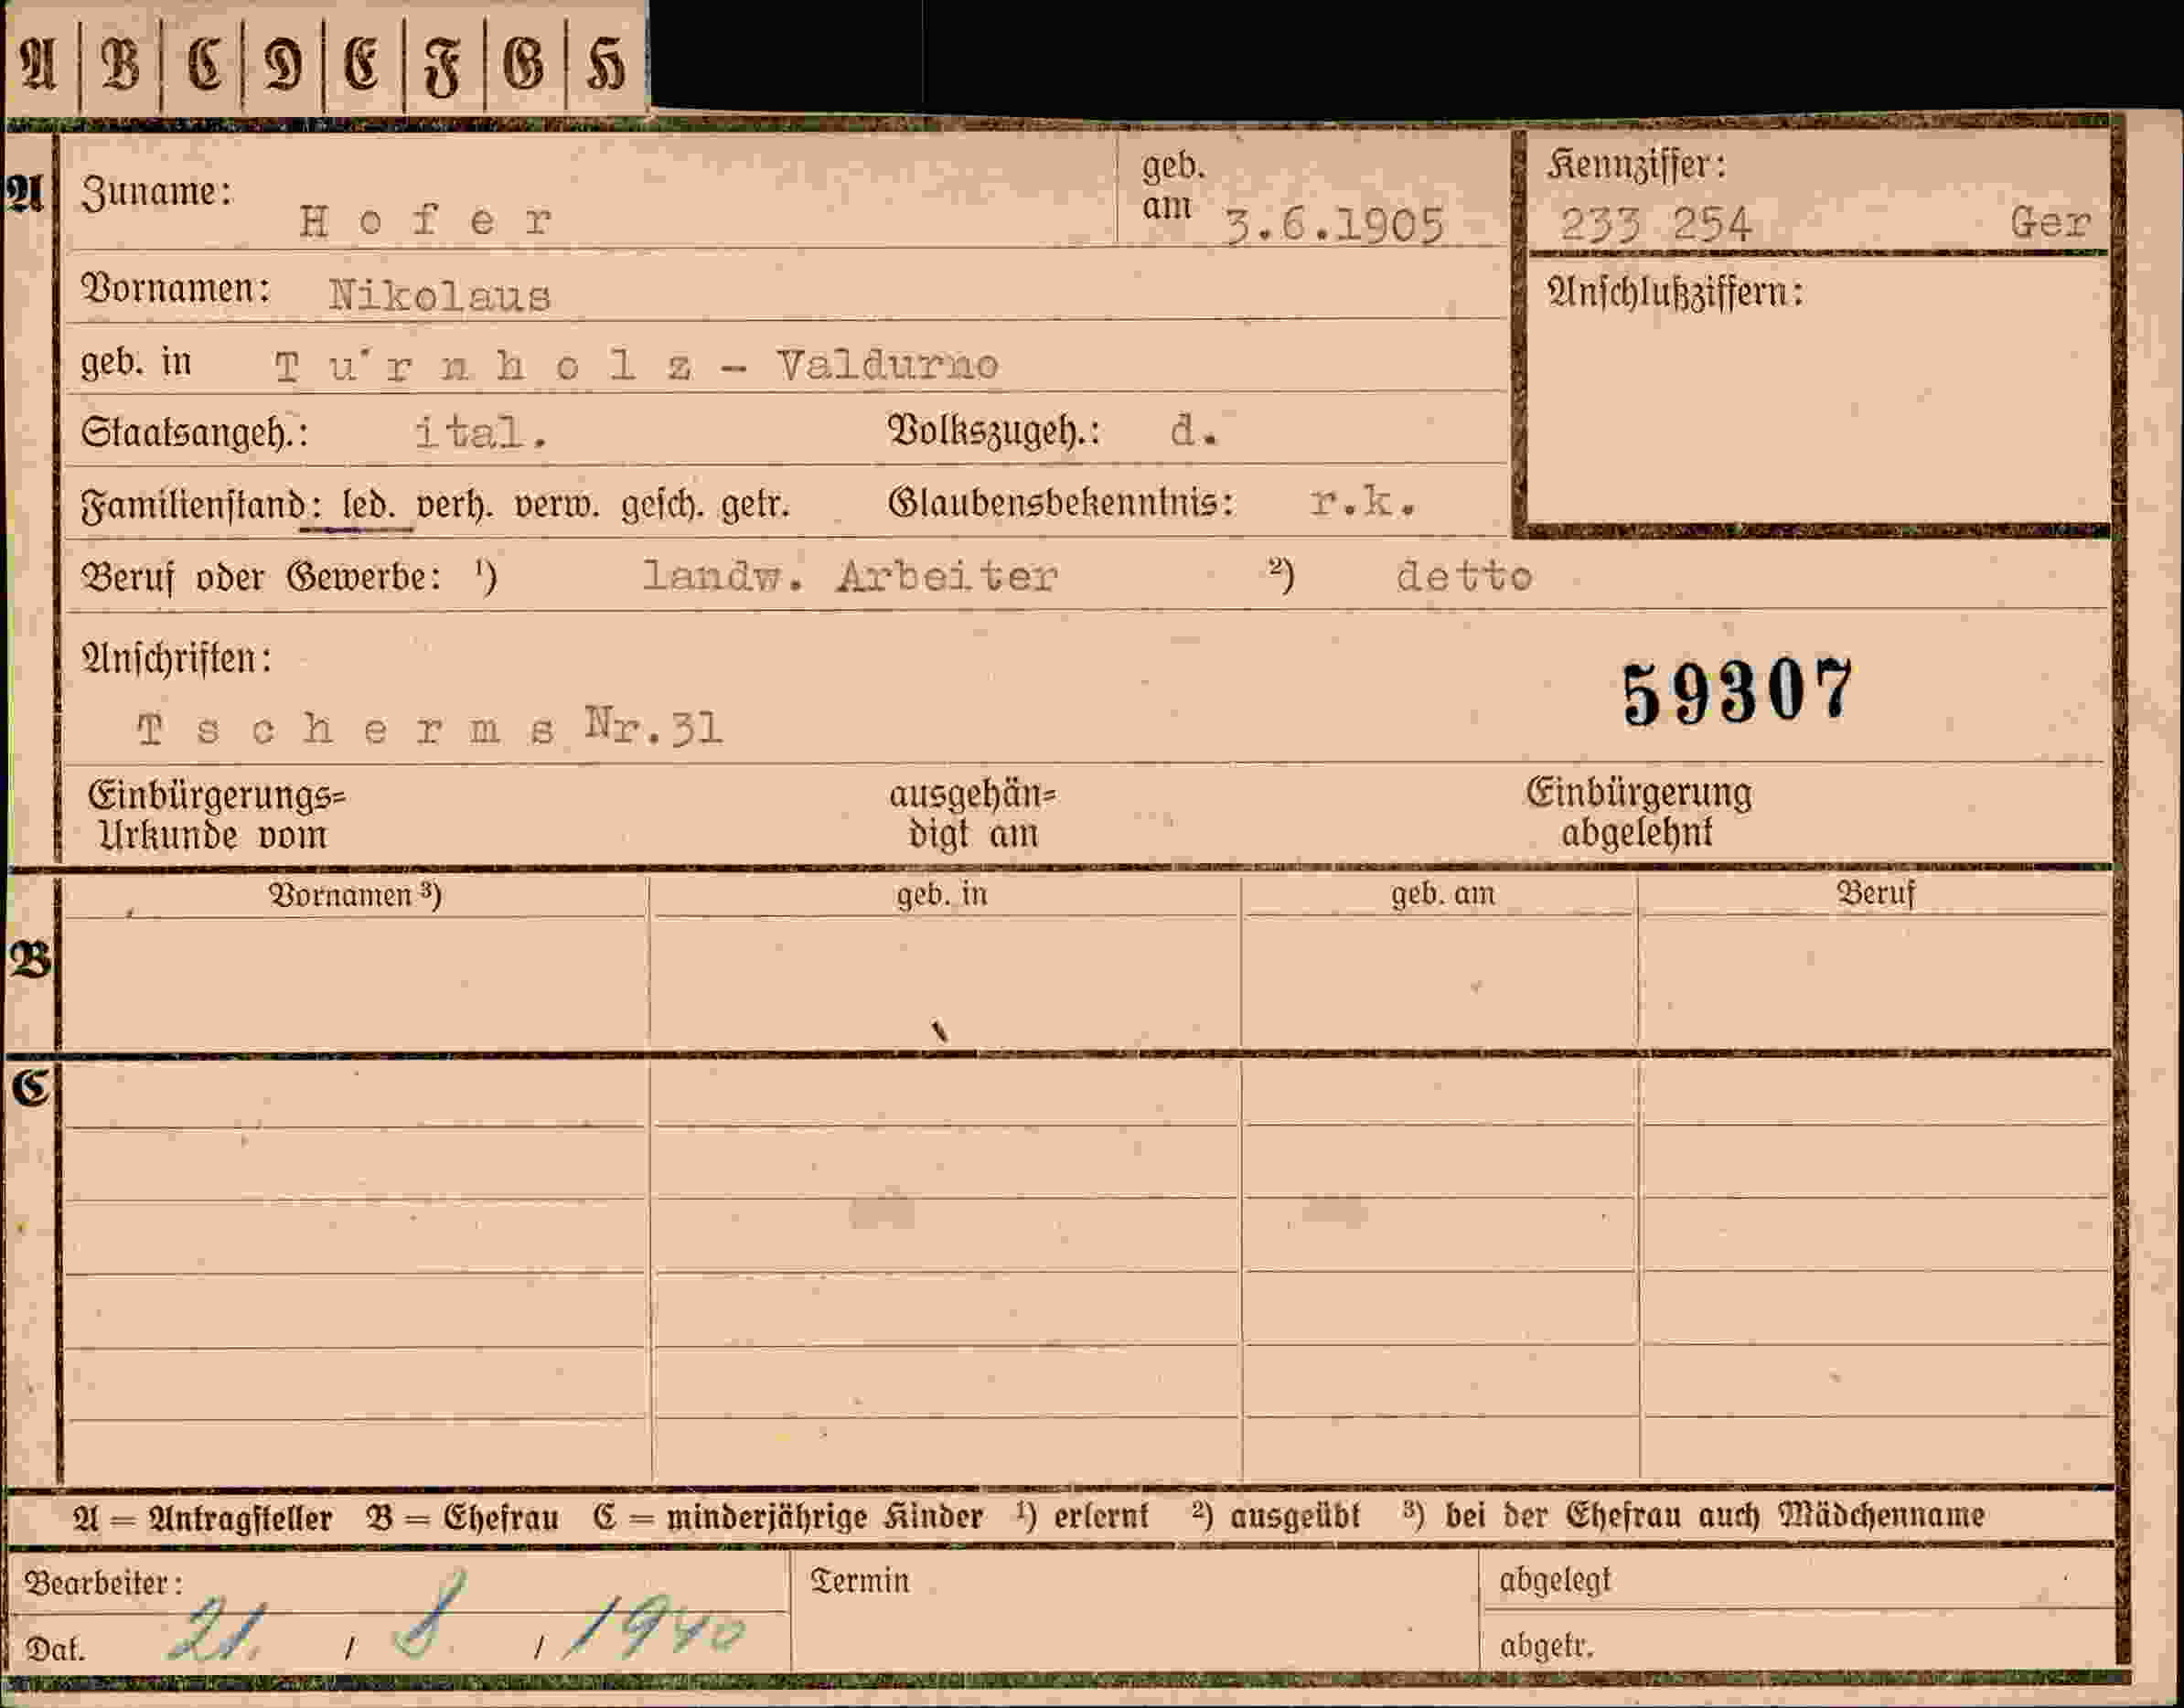 A | B | C | D | E | F | G | H
A
Zuname: Hofer
geb. am 3.6.1905
Kennziffer:
233 254 Ger
Vornamen: Nikolaus
Anschlußziffern:
geb. in Tu'rnholz - Valdurno
Staatsangeh.: ital. Volkszugeh.: d.
Familienstand: led. verh. verw. gesch. getr. Glaubensbekenntnis: r.k.
Beruf oder Gewerbe: ¹) landw. Arbeiter ²) detto
Anschriften:
59307
Tscherms Nr.31
Einbürgerungs= ausgehän= Einbürgerung
Urkunde vom digt am abgelehnt
Vornamen ³) geb. in geb. am Beruf
B
C
A = Antragsteller B = Ehefrau C = minderjährige Kinder ¹) erlernt ²) ausgeübt ³) bei der Ehefrau auch Mädchenname
Bearbeiter: Termin abgelegt
Dat. 21. / 8. / 1940 abgetr.